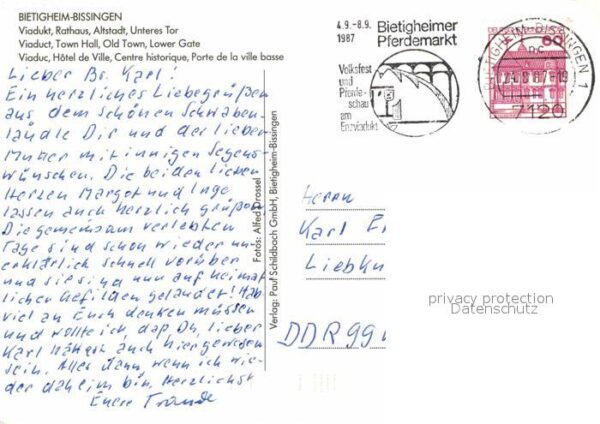 BIETIGHEIM-BISSINGEN
Viadukt, Rathaus, Altstadt, Unteres Tor
Viaduct, Town Hall, Old Town, Lower Gate
Viaduc, Hôtel de Ville, Centre historique, Porte de la ville basse
Lieber Br. Karl!
Ein herzliches Liebegrüßen
aus dem Schönen Schwaben-
ländle Dir und der lieben
Mutter mit innigen Segens-
wünschen. Die beiden lieben
Herzen Margot und Inge
lassen auch herzlich grüßen
Die gemeinsam verlebten
Tage sind schon wieder un-
erklärlich schnell vorüber
und sie sind nun auf heimat-
lichen Gefilden gelandet! Hab
viel an Euch denken müssen
und wollte ich, daß Du, lieber
Karl hättest auch hiergewesen
sein. Alles dann, wenn ich wie-
der daheim bin. Herzlichst
Eure Traude
Verlag: Paul Schildbach GmbH, Bietigheim-Bissingen
Fotos: Alfred Drossel
4.9.-8.9.
1987
Bietigheimer
Pferdemarkt
Volksfest
und
Pferde-
schau
am
Enzviadukt
60
BIETIGHEIM-BISSINGEN 1
7120
Herrn
Karl
Liebkn
DDR 99
privacy protection
Datenschutz